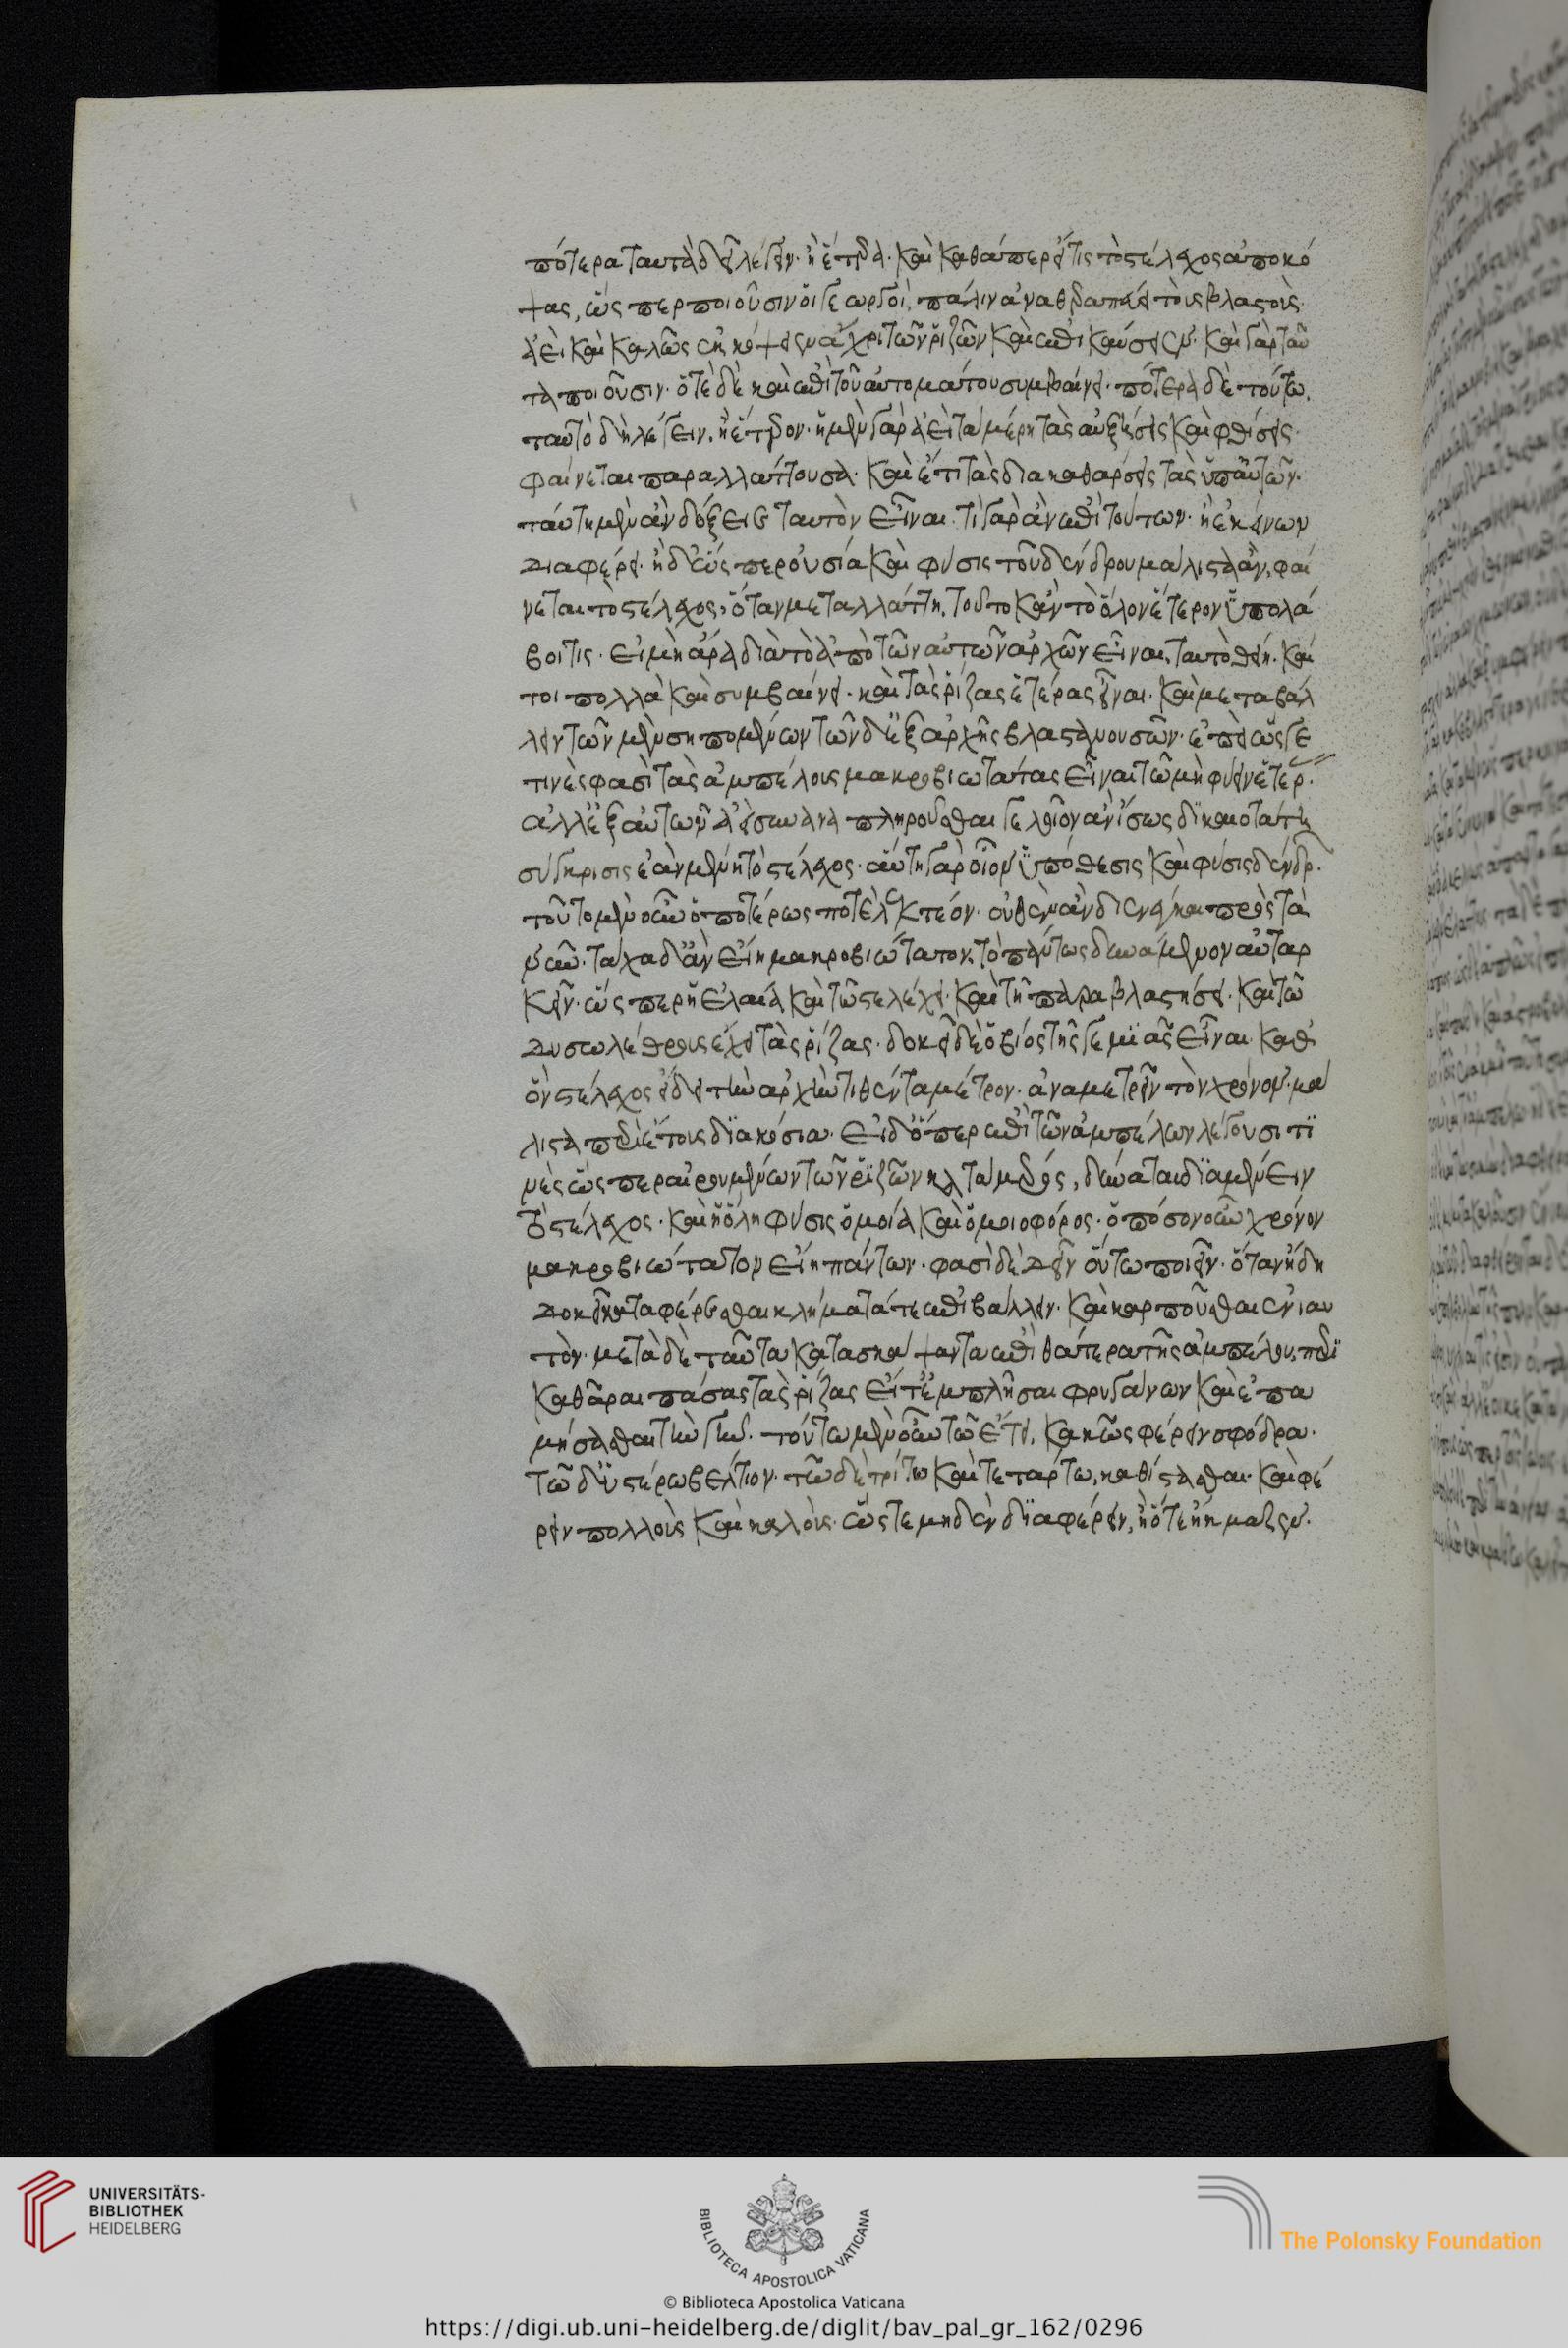 πότερα ταυτὰ δεῖ λέγειν· ἢ ἕτερα· καὶ καθάπερ εἴ τις τὸ στέλεχος ἀποκό
ψας, ὥσπερ ποιοῦσιν ὅι γεωργοὶ, πάλιν ἀναθεραπεύει τοὺς βλαστοὺς·
ἀεὶ καὶ καλῶς
τὰ ποιοῦσιν· ὅτε δὲ καὶ ἐπὶ τοῦ αὐτομάτου συμβαίνει· πότερα δὲ τούτω,
ταυτὸ δὴ λέγειν, ἢ ἕτερον· ἧ μὲν γὰρ ἀεὶ τὰ μέρη τὰς αὐξήσεις καὶ φθίσεις·
φαίνεται παραλλάττουσα· καὶ ἔτι τὰς διακαθάρσεις τὰς ὑπ' αὐτῶν·
ταύτη μὲν ἂν δόξειε ταυτὸν εἶναι· τί γὰρ ἂν ἐπὶ τούτων· ἢ ἐκείνων
διαφέρει· ἧ δ' ὥσπερ οὐσία καὶ φύσις τοῦ δένδρου μάλιστ' ἂν, φαί
νεται τὸ στέλεχος, ὅταν μεταλλάττη, τοῦτο κἂν τὸ ὅλον ἕτερον ὑπολά
βοι τις· εἰ μὴ ἄρα διὰ τὸ ἀπὸ τῶν αὐτῶν ἀρχῶν εἶναι, ταυτὸ θείη· καί
τοι πολλὰ καὶ συμβαίνει· καὶ τὰς ῥίζας ἑτέρας εἶναι· καὶ μεταβάλ
λειν τῶν μὲν σηπομένων τῶν δ' ἐξ ἀρχῆς βλαστανουσῶν· ἐπεὶ ὥς γε
τινές φασὶ τὰς ἀμπέλους μακροβιωτάτας εἶναι τῶ μὴ φύειν ἕτερ·
ἀλλ' ἐξ αὐτῶν ἀεὶ συναναπληροῦσθαι γελοῖον ἂν ἴσως δικαιοτάτη
σύγκρισις ἐὰν μένη τὸ στέλεχος· αὕτη γὰρ οἷον ὑπόθεσις καὶ φύσις δένδρ·
τοῦτο μὲν οὖν ὁποτέρως ποτὲ λεκτέον· οὐθὲν ἂν διενέγκαι πρὸς τὰ
νῦν· τάχα δ' ἂν εἴη μακροβιώτατον, τὸ πάντως δυνάμενον αὐταρ
κεῖν· ὥσπερ ἡ ἐλαία καὶ τῶ στελέχει· καὶ τῆ παραβλαστήσει· καὶ τῶ
δυσωλέθρους ἔχει τὰς ῥίζας· δοκεῖ δὲ ὁ βίος τῆς γε μιᾶς εἶναι· καθ'
ὃν στέλεχος ἔδει τὴν ἀρχὴν τιθέντα μέτρον· ἀναμετρεῖν τὸν χρόνον· μά
λιστα περὶ ἔτους διακόσια· εἰ δ' ὅπερ ἐπὶ τῶν ἀμπέλων λέγουσι τι
νὲς ὥσπερ αἰρουμένων τῶν ῥιζῶν κατὰ μέρος, δύναται διαμένειν
τὸ στέλεχος· καὶ ἡ ὅλη φύσις ὁμοία καὶ ὁμοιοφόρος· ὁπόσον οὖν χρόνον
μακροβιώτατον εἴη πάντων· φασὶ δὲ δεῖν οὕτω ποιεῖν· ὅταν ἤδη
δοκῆ καταφέρεσθαι κλήματά τε ἐπιβάλλειν· καὶ καρποῦσθαι ἐνιαυ
τὸν· μετὰ δὲ ταῦτα κατασκάψαντα ἐπὶ θάτερα τῆς ἀμπέλου, περι
καθᾶραι πάσας τὰς ῥίζας εἶτ' ἐμπλῆσαι φρυγάνων καὶ ἐπα
μήσασθαι τὴν γῆν· τούτω μὲν οὖν τῶ ἔτει, κακῶς φέρειν σφόδρα·
τῶ δ' ὑστέρω βέλτιον· τῶ δὲ τρίτω καὶ τετάρτω, καθίστασθαι· καὶ φέ
ρειν πολλοὺς καὶ καλοὺς· ὥστε μηδὲν διαφέρειν, ἢ ὅτε ἤκμαζεν·
UNIVERSITÄTS-
BIBLIOTHEK
HEIDELBERG
BIBLIOTECA APOSTOLICA VATICANA
The Polonsky Foundation
© Biblioteca Apostolica Vaticana
https://digi.ub.uni-heidelberg.de/diglit/bav_pal_gr_162/0296